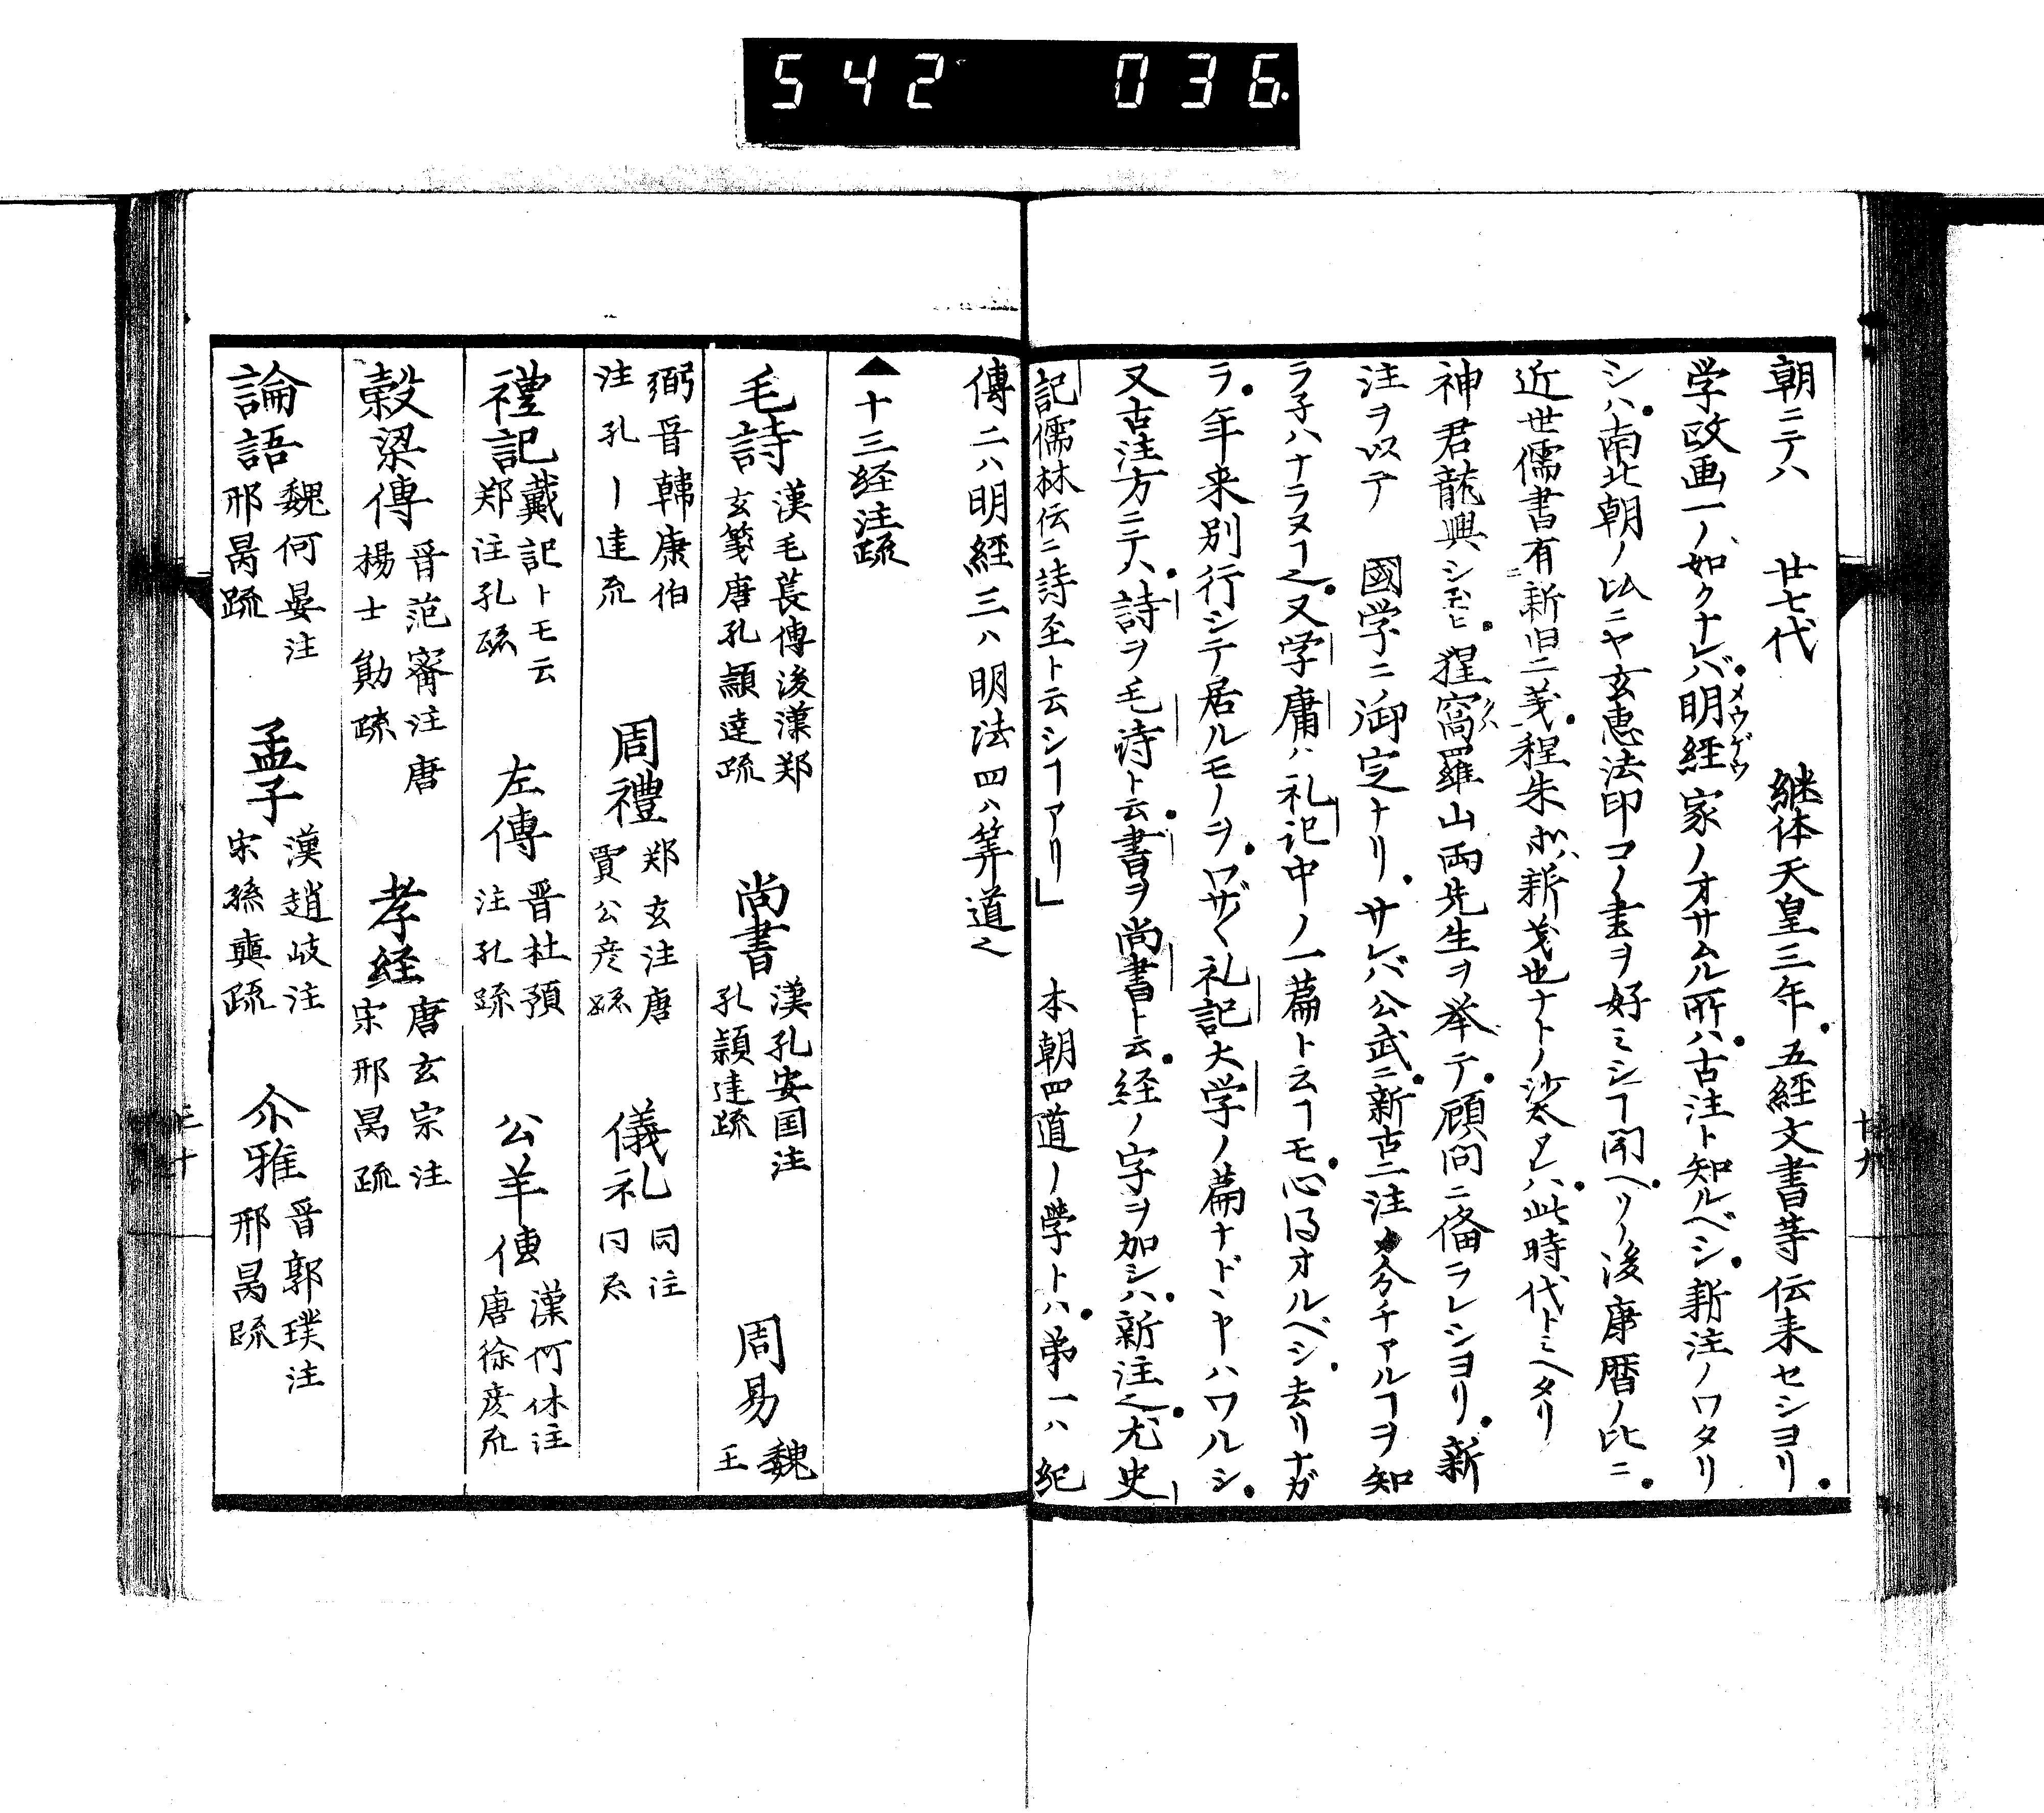 542 036.
朝ニテハ 廿七代 継体天皇三年五経文書等伝来セシヨリ
学政画一ノ如クナレバ明経家ノオサムル所ハ古注ト知ルベシ新注ノワタリ
メウゲウ
シハ南北朝ノ比ニヤ玄恵法印コノ書ヲ好ミシヿ聞ヘリノ後康暦ノ比ニ
近世儒書有新旧二義程朱ホハ新義也ナトノ沙太タレハ此時代トミヘタリ
神君龍興シ玉ヒ猩窩羅山両先生ヲ挙テ顧問ニ備ラレシヨリ新
注ヲ以テ 國学ニノ御定ナリサレバ公武ニ新古二注分チアルヿヲ知
ラ子ハナラヌヿ之又学庸ハ礼記中ノ一篇ト云ヿモ心得オルベシ去リナガ
ラ年来別行シテ居ルモノヲワザ〱礼記大学ノ篇ナドヽヤハワルシ
又古注方ニテハ詩ヲ毛詩ト云書ヲ尚書ト云経ノ字ヲ加シハ新注之尤史
記儒林伝ニ詩至ト云シヿアリ」 本朝四道ノ學トハ第一ハ紀
傳二ハ明経三ハ明法四ハ筭道之
▲十三経注疏
毛詩 漢毛萇傳後漢郑玄箋唐孔頴達疏 尚書 漢孔安国注孔頴達疏 周易 魏王
弼晋韓康伯注孔ー達疏 周禮 郑玄注唐賈公彦疏 儀礼 同注同疏
禮記 戴記トモ云郑注孔疏 左傳 晋杜預注孔疏 公羊傳 漢何休注唐徐彦疏
穀梁傳 晋范甯注唐楊士勛疏 孝経 唐玄宗注宋邢昺疏
論語 魏何晏注邢昺疏 孟子 漢趙岐注宋孫奭疏 尒雅 晋郭璞注邢昺疏
廿九
三十